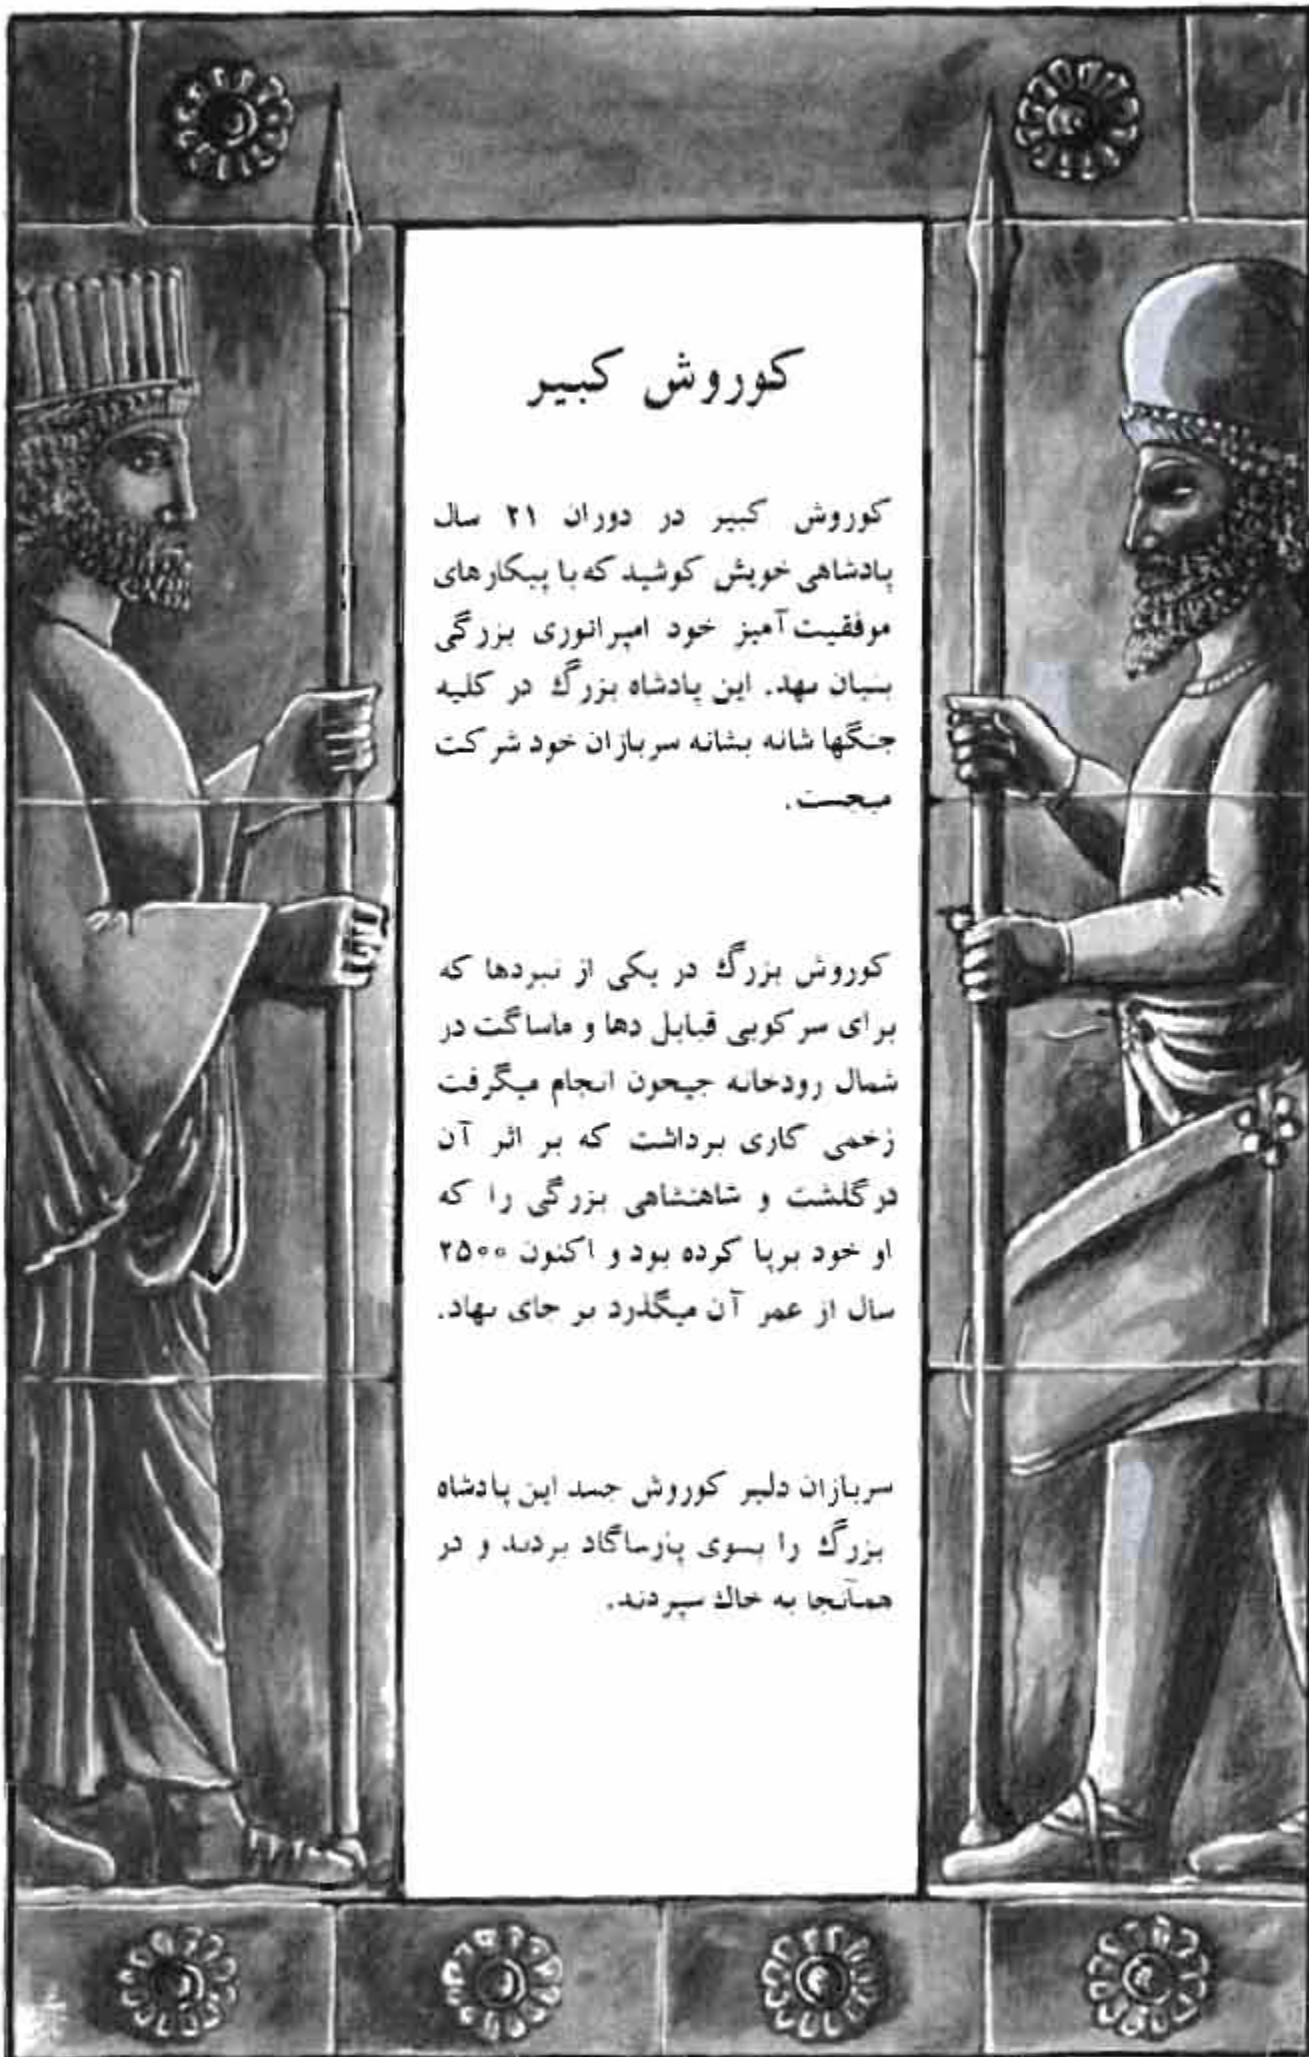 کوروش کبیر
کوروش کبیر در دوران ۲۱ سال
پادشاهی خویش کوشید که با پیکارهای
موفقیت آمیز خود امپراتوری بزرگی
بنیان نهد. این پادشاه بزرگ در کلیه
جنگها شانه بشانه سربازان خود شرکت
میجست.
کوروش بزرگ در یکی از نبردها که
برای سرکوبی قبایل دها و ماساگت در
شمال رودخانه جیحون انجام میگرفت
زخمی کاری برداشت که بر اثر آن
درگذشت و شاهنشاهی بزرگی را که
او خود برپا کرده بود و اکنون ۲۵۰۰
سال از عمر آن میگذرد بر جای نهاد.
سربازان دلیر کوروش جسد این پادشاه
بزرگ را بسوی پازساگاد بردند و در
همانجا به خاک سپردند.